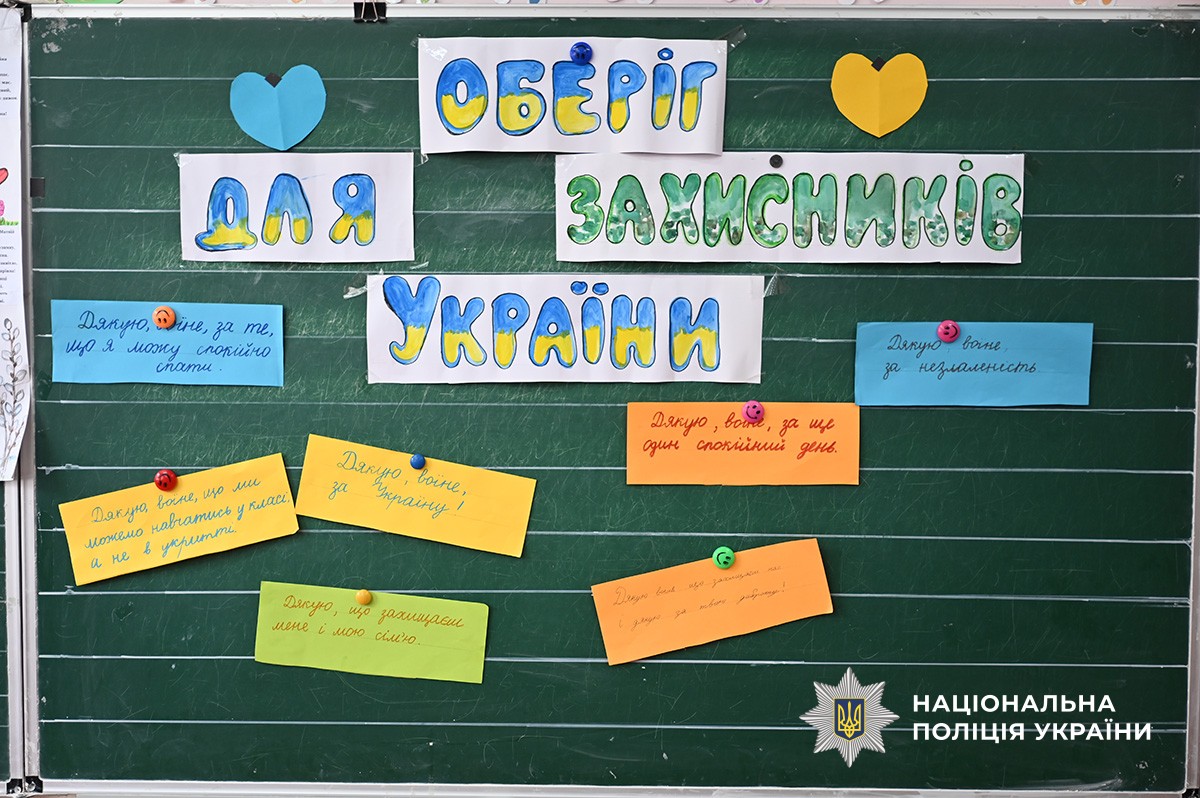 ОБЕРІГ
ДЛЯ ЗАХИСНИКІВ
УКРАЇНИ
Дякую, воїне, за те,
що я можу спокійно
спати.
Дякую, воїне
за незламність
Дякую, воїне, за ще
один спокійний день.
Дякую, воїне,
за Україну!
Дякую, воїне, що ми
можемо навчатись у класі,
а не в укритті.
Дякую воїн що захищаєш нас
і дякую за твою доброту!
Дякую, що захищаєш
мене і мою сім'ю.
НАЦІОНАЛЬНА
ПОЛІЦІЯ УКРАЇНИ